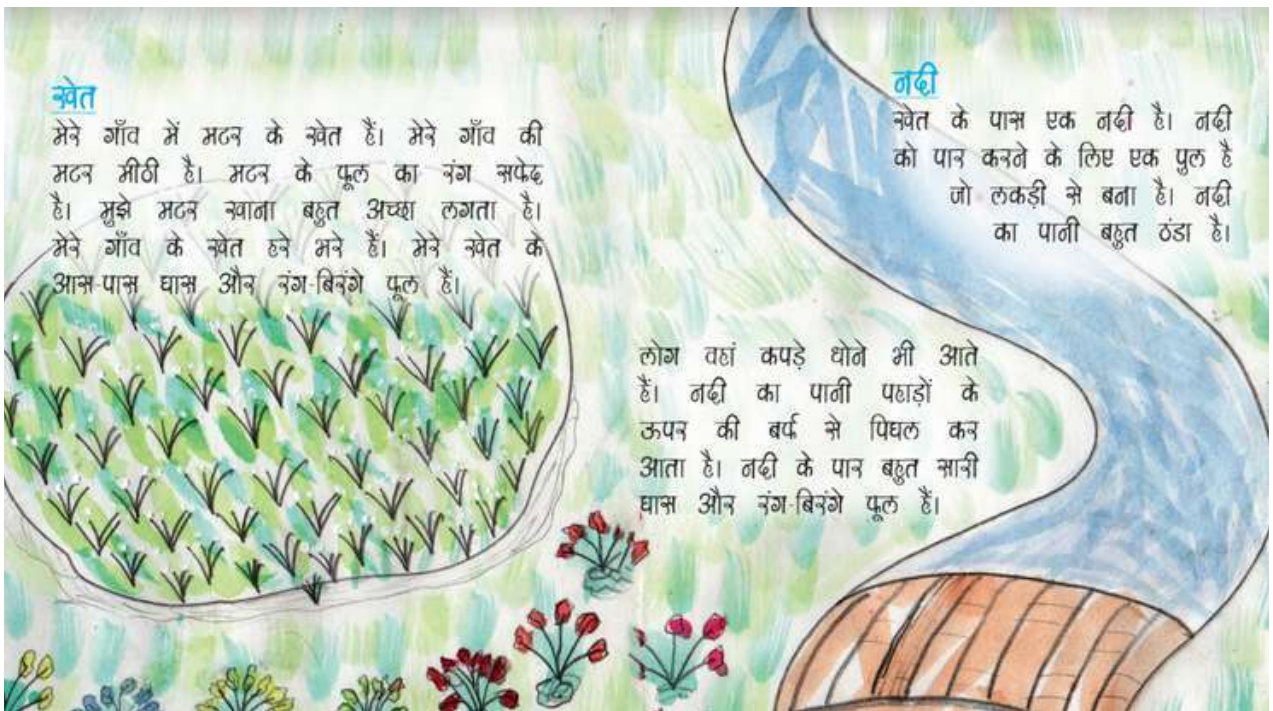 खेत
मेरे गाँव में मटर के खेत हैं। मेरे गाँव की
मटर मीठी है। मटर के फूल का रंग सफेद
है। मुझे मटर खाना बहुत अच्छा लगता है।
मेरे गाँव के खेत हरे भरे हैं। मेरे खेत के
आस-पास घास और रंग-बिरंगे फूल हैं।
नदी
खेत के पास एक नदी है। नदी
को पार करने के लिए एक पुल है
जो लकड़ी से बना है। नदी
का पानी बहुत ठंडा है।
लोग वहां कपड़े धोने भी आते
हैं। नदी का पानी पहाड़ों के
ऊपर की बर्फ से पिघल कर
आता है। नदी के पार बहुत सारी
घास और रंग-बिरंगे फूल हैं।